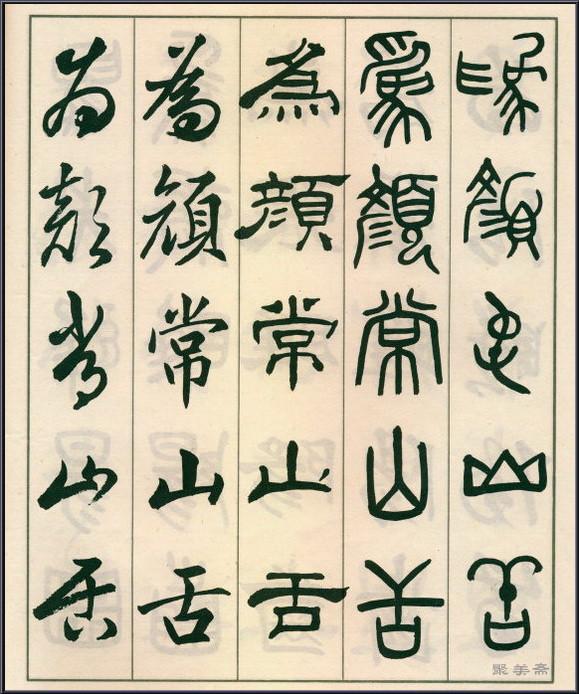 為顏常山舌
為顏常山舌
為顏常山舌
為顏常山舌
為顏常山舌
聚美斋